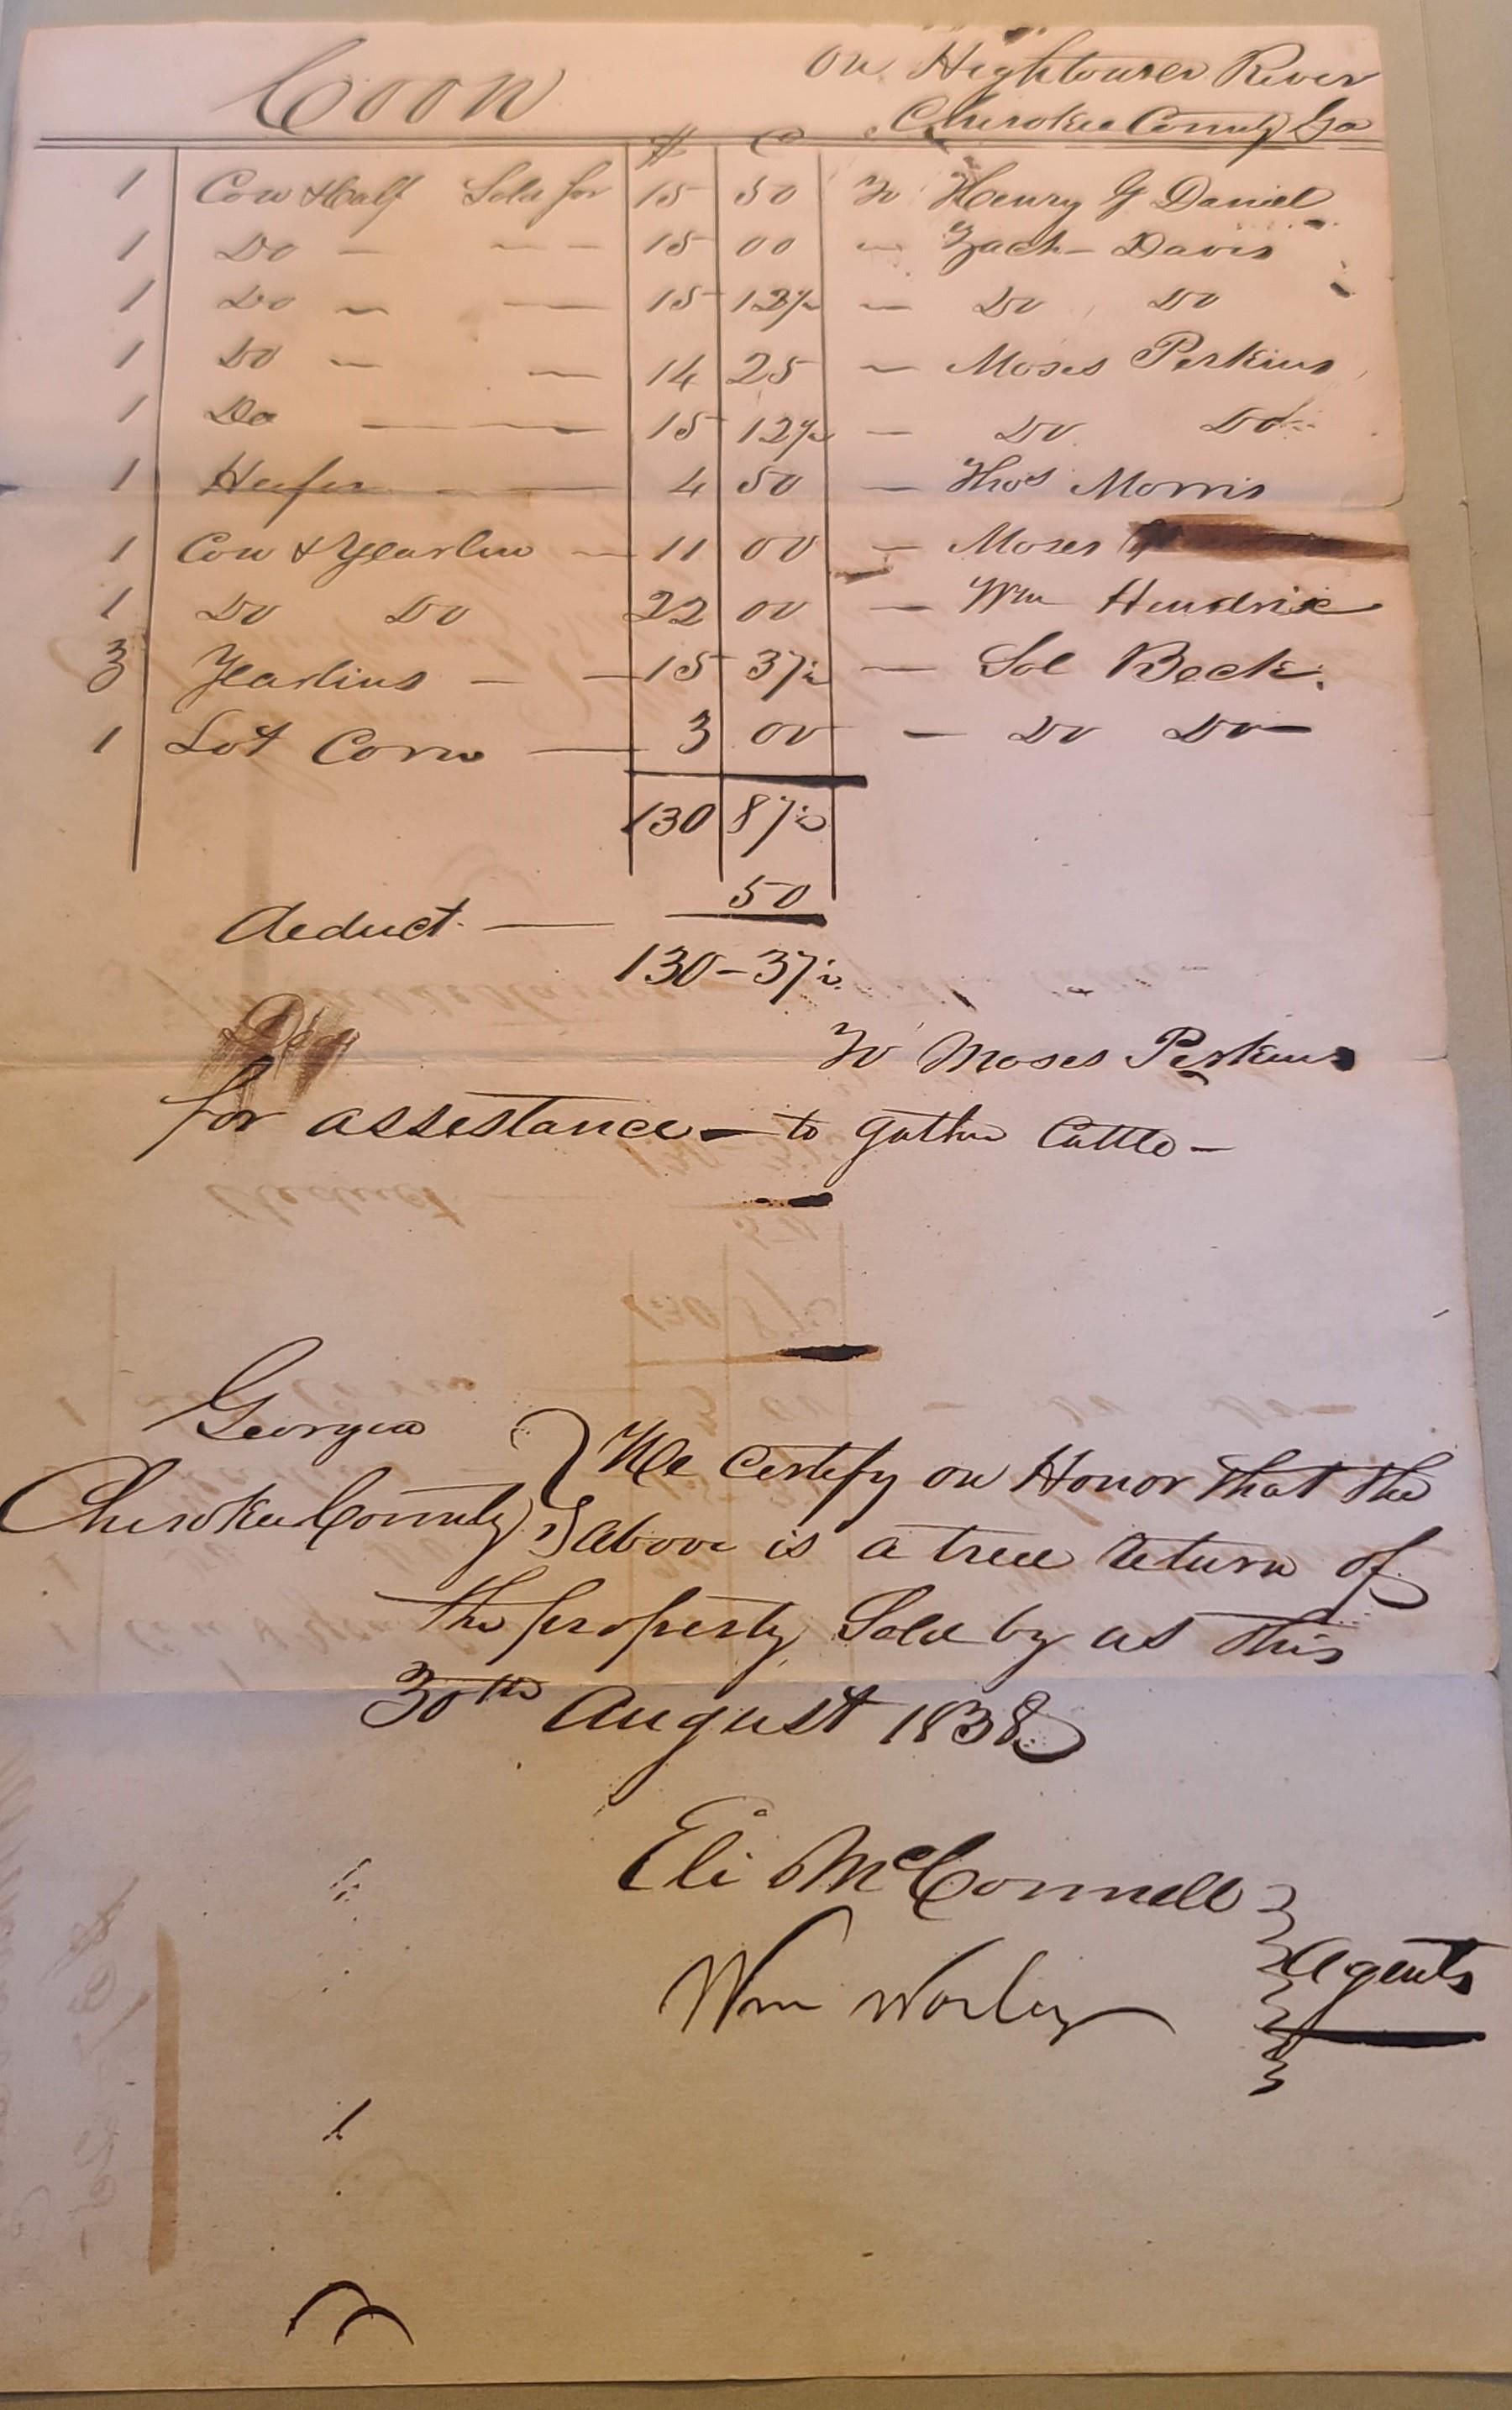 Coon
on Hightower River
Cherokee County Ga
$ C
1 Cow & Calf Sold for 15 50 To Henry G Daniel
1 Do — — — 15 00 — Zach Davis
1 Do — — 15 12½ — Do Do
1 Do — — 14 25 — Moses Perkins
1 Do — — 15 12½ — Do Do
1 Heifer — — 4 50 — Thos Morris
1 Cow & Yearlin — 11 00 — Moses
1 Do Do 22 00 — Wm Hendrix
3 Yearlins — — 15 37½ — Sol Beck.
1 Lot Corn — 3 00 — Do Do
130 87½
deduct — 50
130 – 37½
To Moses Perkins
for assestance — to gather Cattle —
Georgia
Cherokee County } We Certify on Honor that the
above is a true return of
the property Sold by us this
30th August 1838
Eli McConnell
Wm Worley
Agents